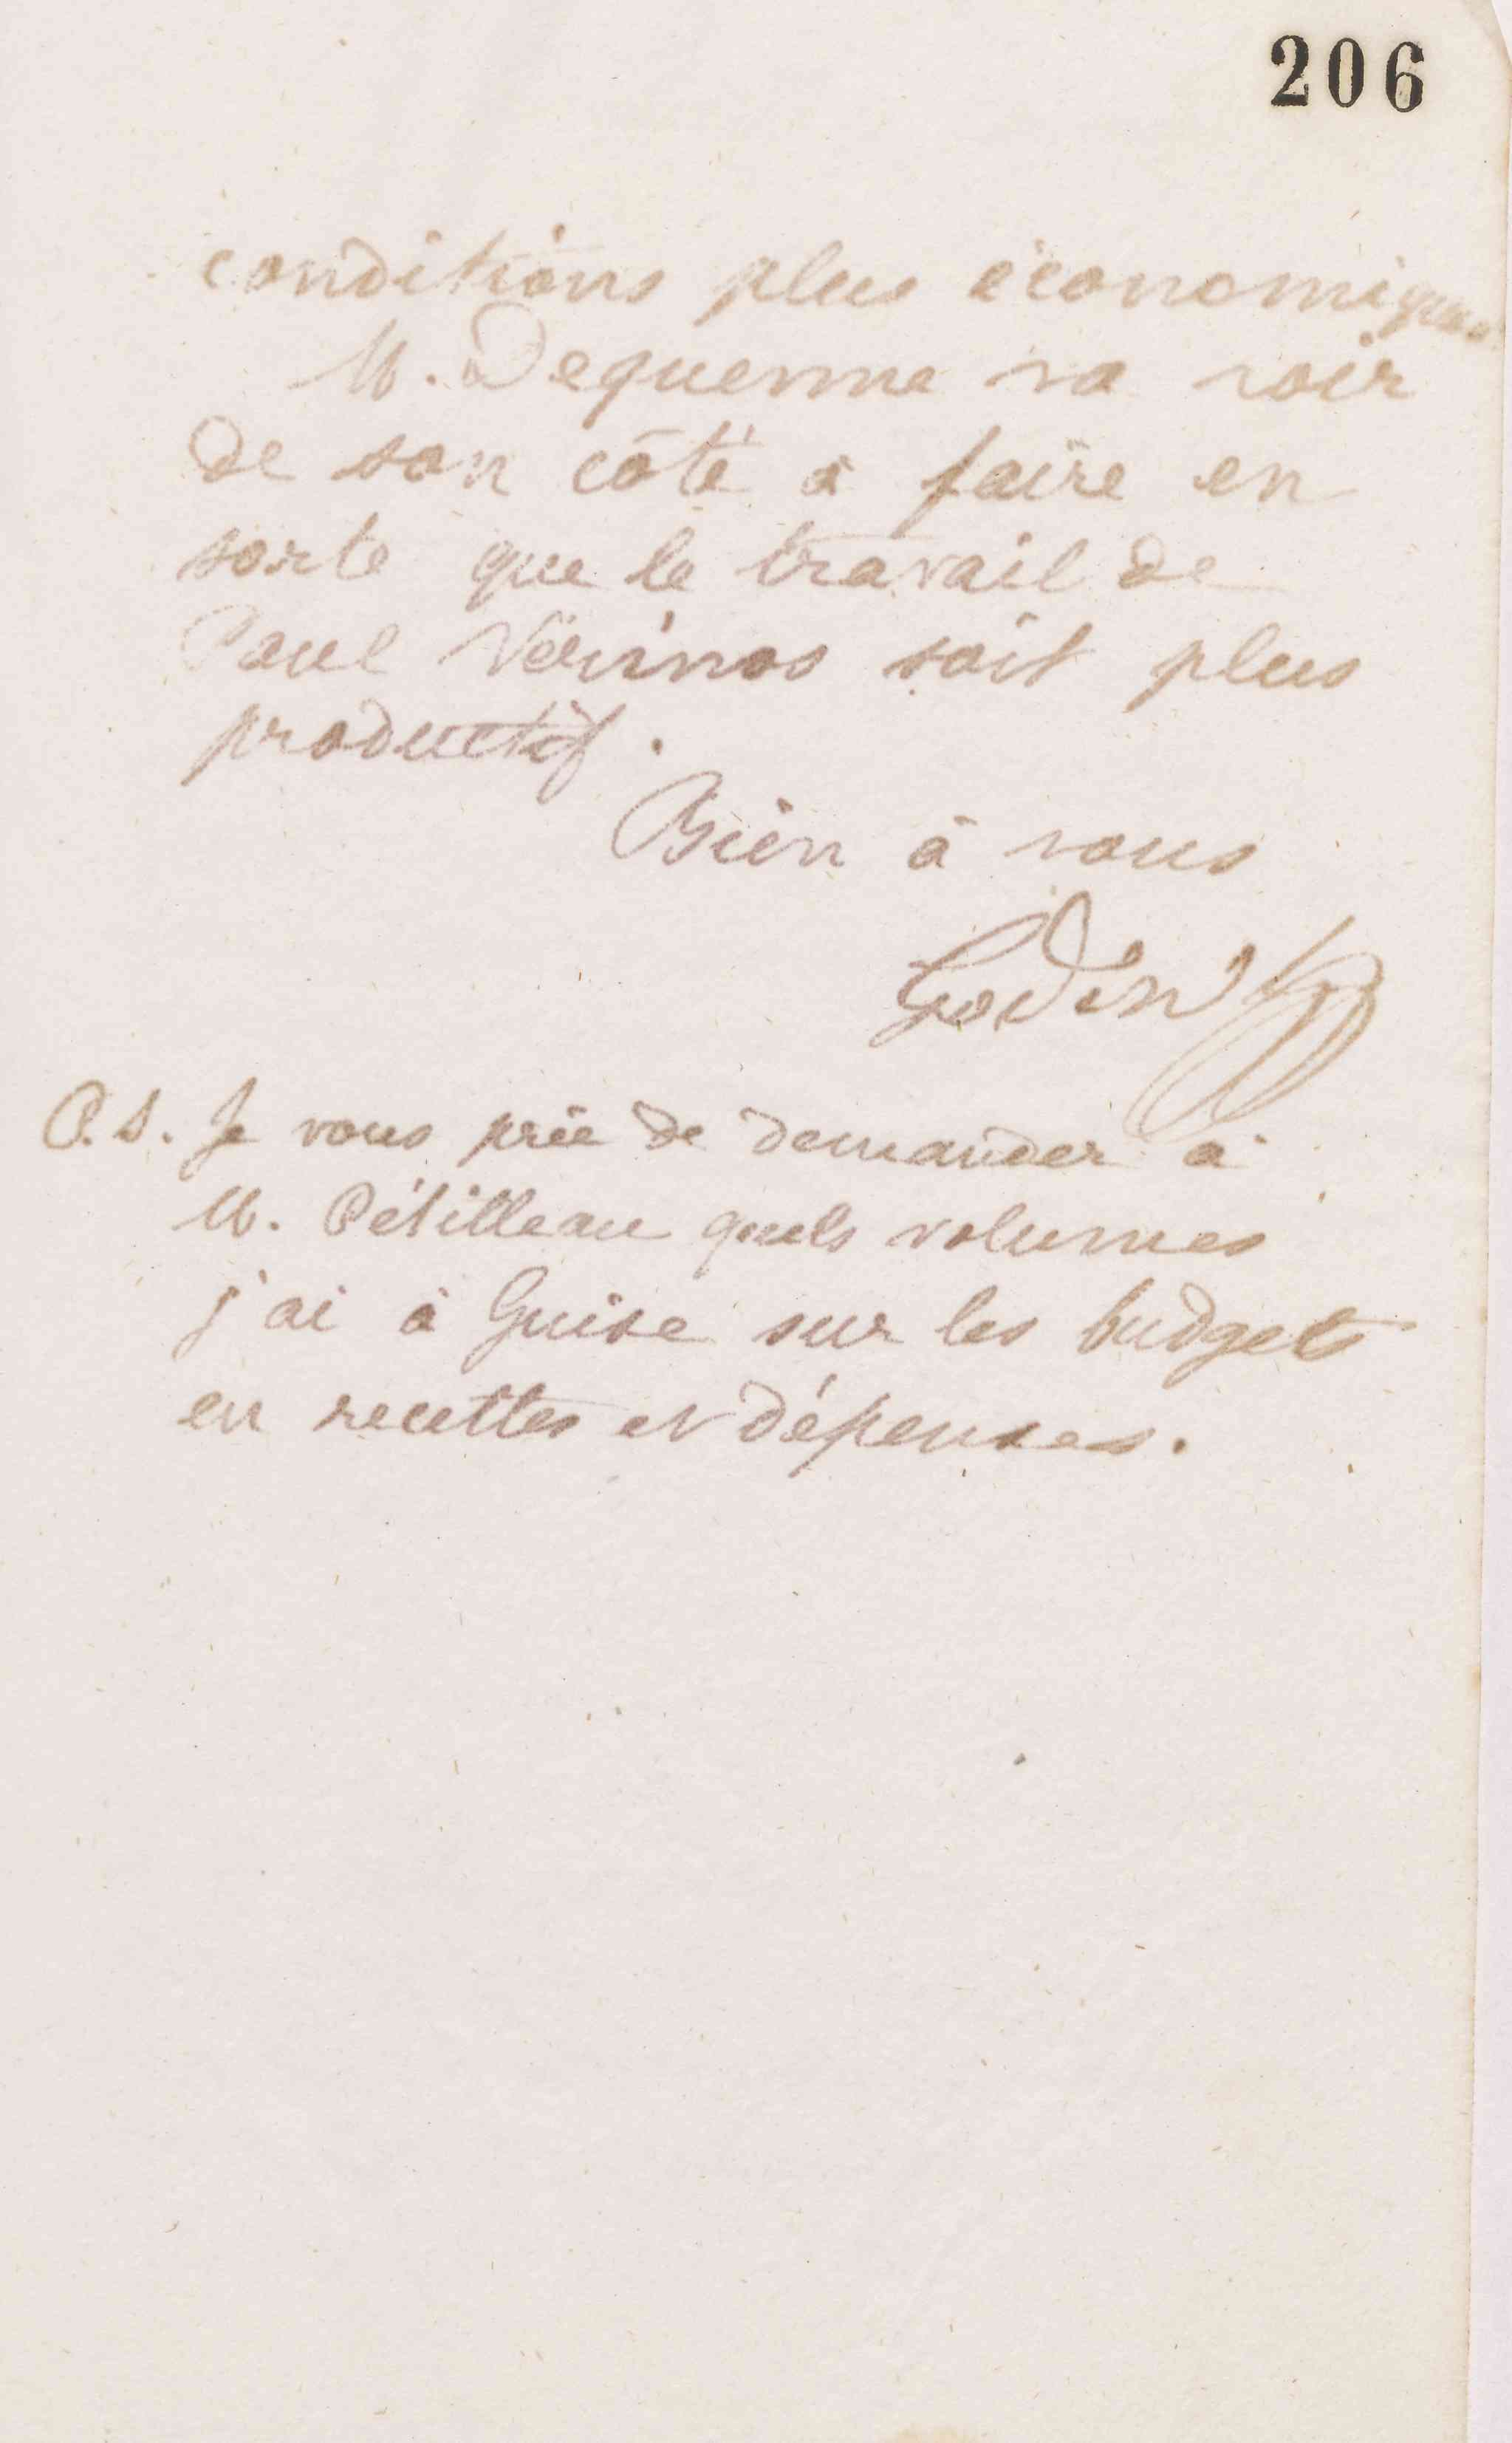 206
conditions plus économiques
M. Dequenne va voir
de son côté à faire en
sorte que le travail de
Paul soit plus
productif.
Bien à vous
Godin
P.S. Je vous prie de demander à
M. Pétilleau quels volumes
j'ai à Guise sur les budgets
en recettes et dépenses.